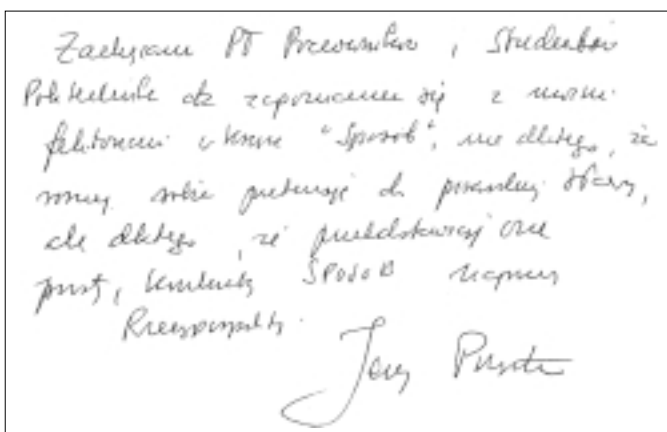 Zachęcam PT Pracowników i Studentów
Politechniki do zapoznania się z moimi
felietonami "Sposób", nie dlatego, że
roszczę sobie pretensję do
ale dlatego, że przedstawiają one
prosty, konkretny SPOSÓB naprawy
Rzeczypospolitej.
Jerzy